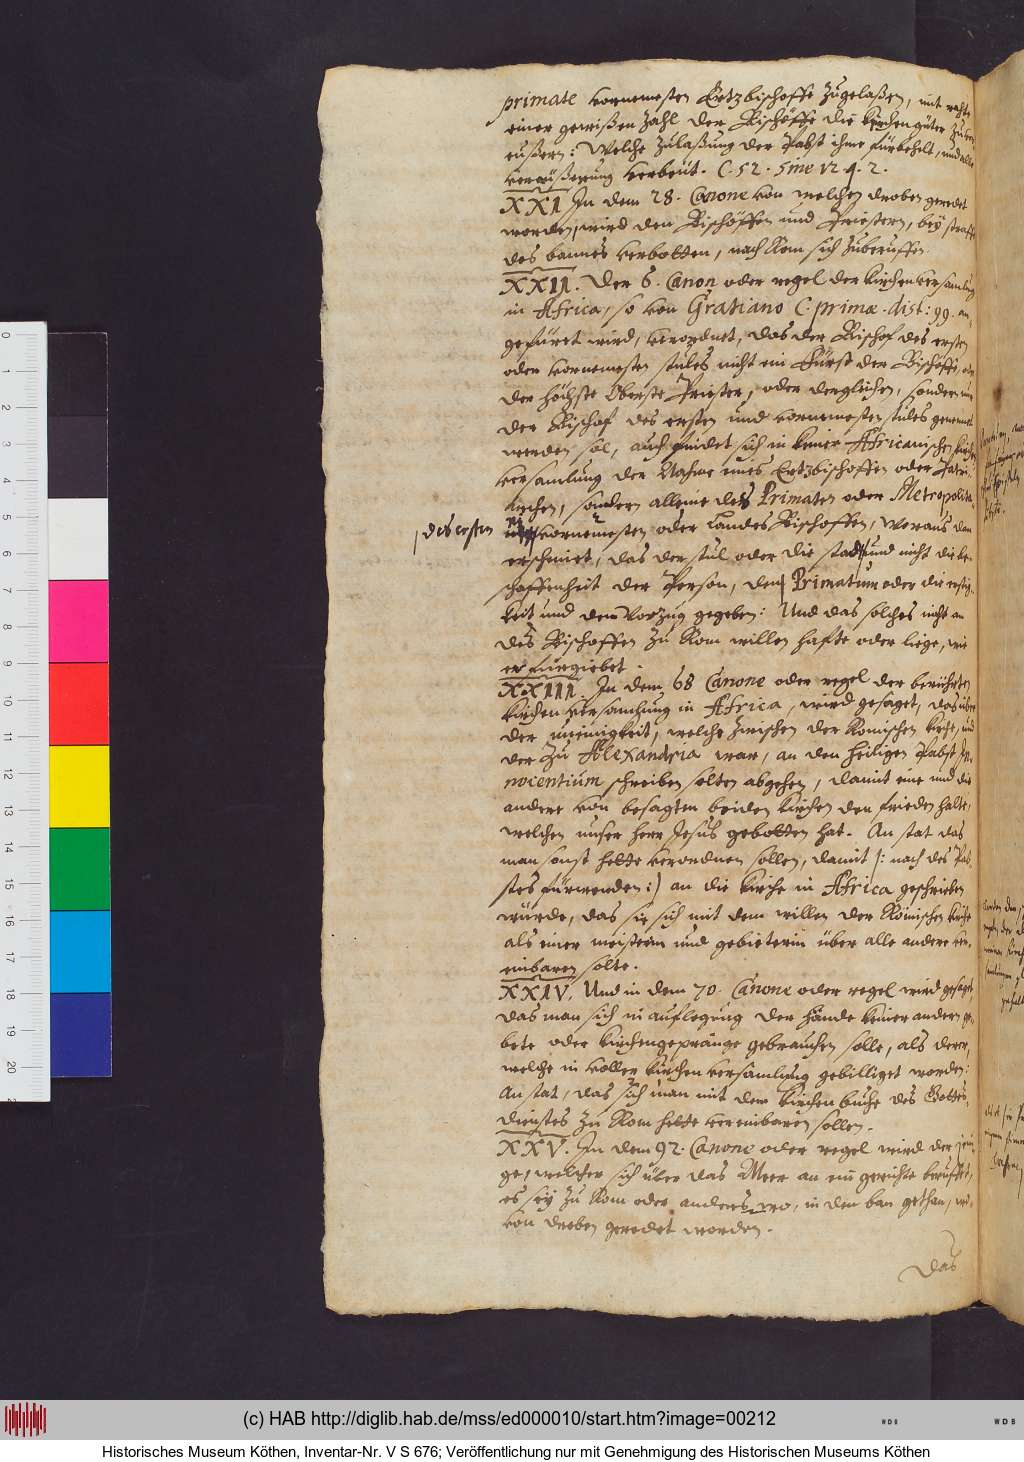 primate vornemesten Ertzbischoffe zugelaßen, mit recht
einer gewißen zahl der Bischöffe die kirchengüter zuver
eußern: Welche zulaßung der Pabst ihme fürbehelt, und alle
veräußerung verbeut. C. 52. 5me 12 q. 2.
XXI In dem 28. Canone von welchen droben geredet
worden, wird den Bischöffen und Priestern, bey straffe
des bannes verbotten, nach Rom sich zuberuffen.
XXII. Der 6. Canon oder regel der kirchenversamlung
in Africa, so von Gratiano C. primæ. dist: 99. an,
gefüret wird, verordnet, das der Bischof des ersten
oder vornemesten stules nicht ein Fürst der Bischöffe, oder
der höchste Oberste Priester, oder dergleichen, sondern nur
der Bischof des ersten und vornemesten stules genennet
werden sol, auch findet sich in keiner Africanischen kirchen
versamlung der Nahme eines Ertzbischoffen oder Patri,
archen, sondern alleine des Primaten oder Metropolita,
des ersten
vornemesten oder Landes Bischoffen, woraus dan
erscheinet, das der stul oder die stadt und nicht die be,
schaffenheit der Person, den Primatum oder die erstig,
keit und den Vorzug gegeben: Und das solches nicht an
des Bischoffen zu Rom willen hafte oder liege, wie
er furgiebet.
XXIII. In dem 68 Canone oder regel der berührten
kirchen versamlung in Africa, wird gesaget, das über
der uneinigkeit, welche zwischen der Romischen kirche, und
der zu Alexandria war, an den heiligen Pabst In,
nocentium schreiben solten abgehen, damit eine und die
andere von besagten beiden kirchen den frieden halte,
welchen unser herr Jesus gebotten hat. An stat das
man sonst hette verordnen sollen, damit /: nach des Pab
stes fürwenden :/ an die kirche in Africa geschrieben
würde, das sie sich mit dem willen der Römischen kirche
als einer meisterin und gebieterin über alle andere ver,
einbaren solte.
XXIV. Und in dem 70. Canone oder regel wird gesaget,
das man sich in auflegung der hände keiner andern ge,
bete oder kirchengepränge gebrauchen solle, als derer,
welche in voller kirchen versamlung gebilliget worden:
An stat, das sich man mit dem kirchen buche des Gottes,
dienstes zu Rom hette vereinbaren sollen.
XXV. In dem 92. Canone oder regel wird der jeni
ge, welcher sich über das Meer an ein gerichte beruffet,
es sey zu Rom oder anders wo, in den ban gethan, wo
von droben geredet worden.
Das
0
1
2
3
4
5
6
7
8
9
10
11
12
13
14
15
16
17
18
19
20
(c) HAB http://diglib.hab.de/mss/ed000010/start.htm?image=00212
Historisches Museum Köthen, Inventar-Nr. V S 676; Veröffentlichung nur mit Genehmigung des Historischen Museums Köthen